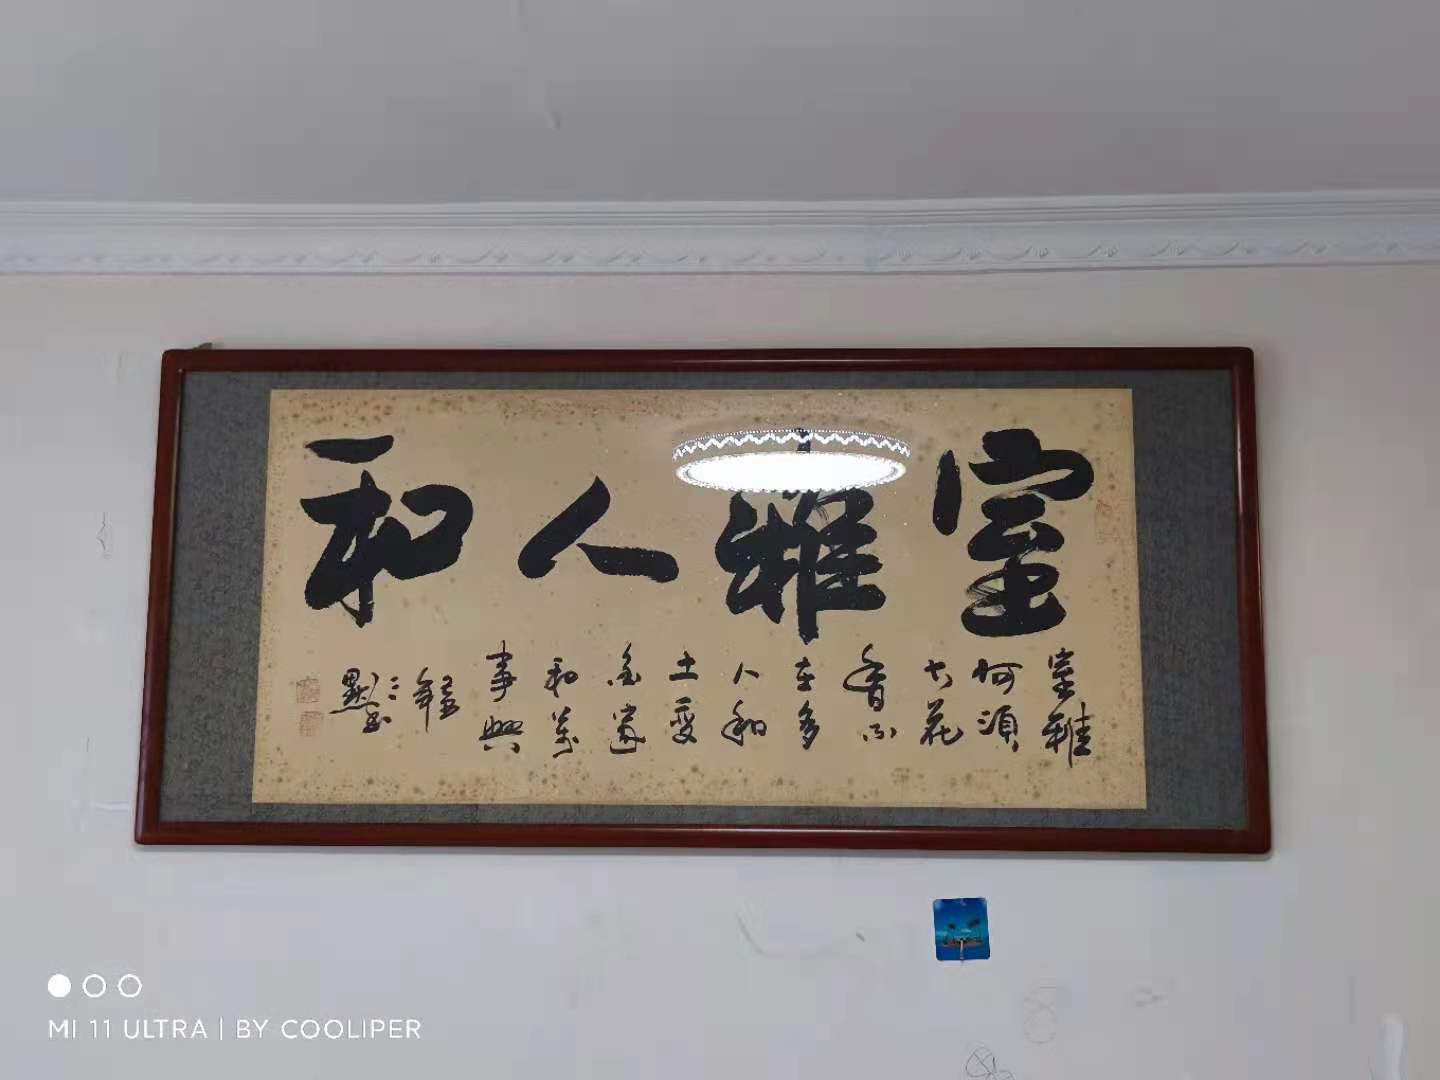 室雅人和
室雅
何須
大花
香不
在多
人和
土變
金家
和萬
事興
年
默書
MI 11 ULTRA | BY COOLIPER